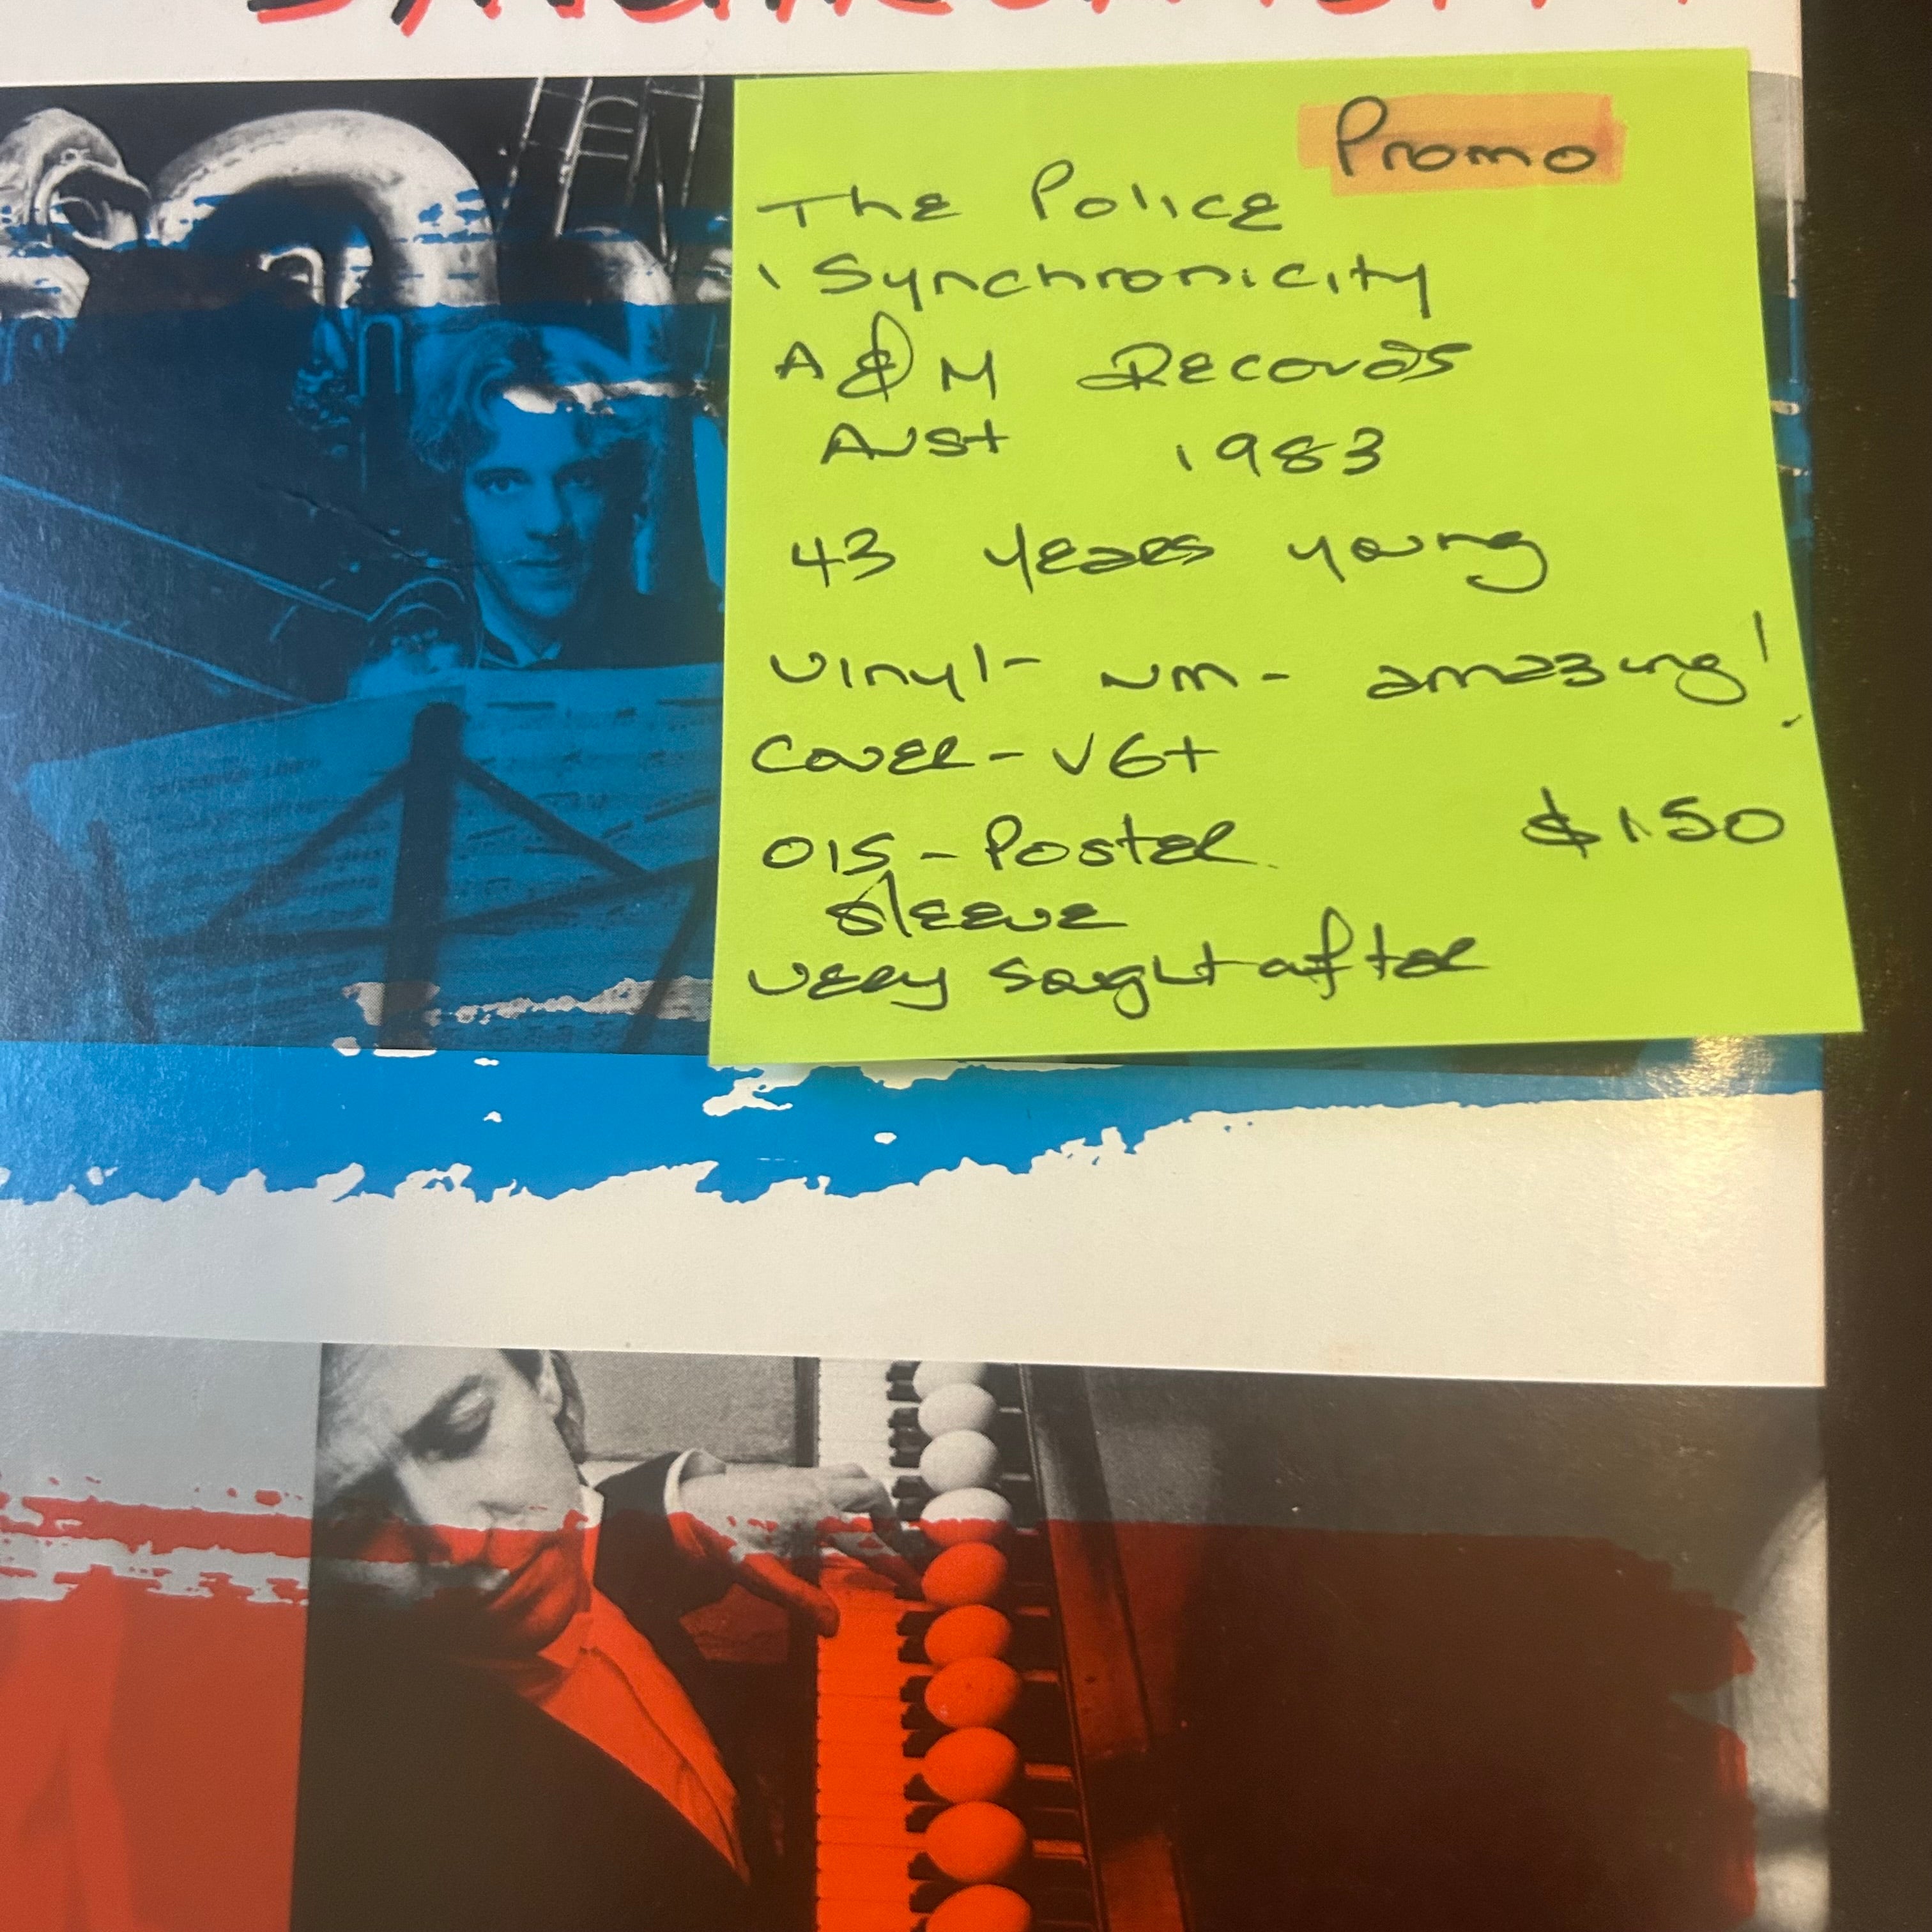 SYNCHRONICITY
Promo
The Police
Synchronicity
A & M Records
Aust 1983
43 years young
Vinyl - NM - amazing!
Cover - VG+
OIS - Poster $150
sleeve
very sought after